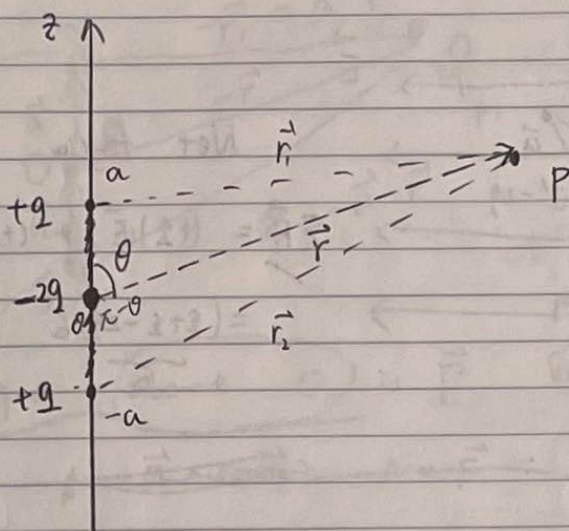 z
r₁
a
P
+q
θ
r
-2q
O
π-θ
r₂
+q
-a